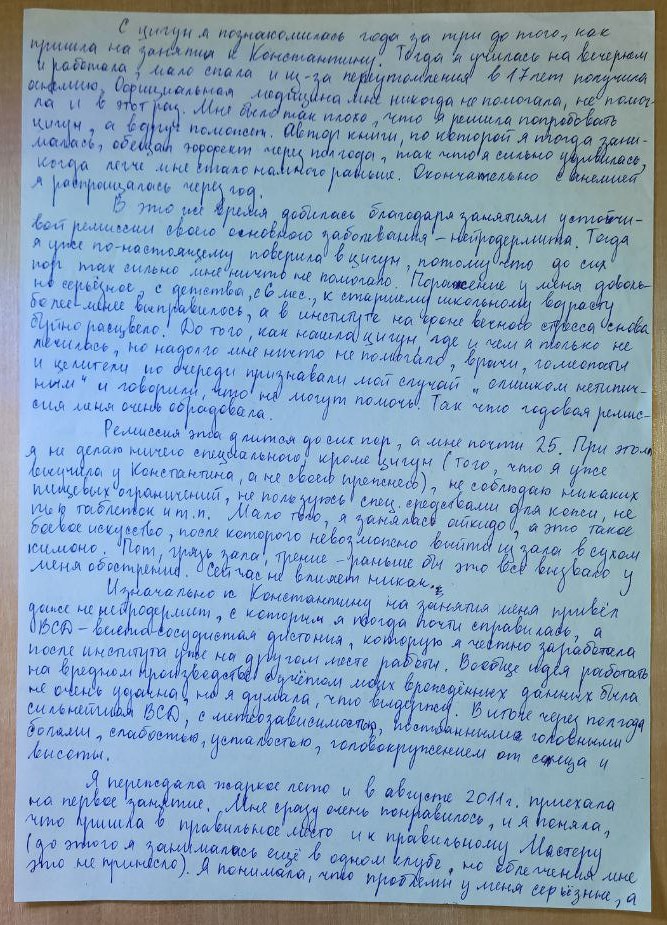 С цигун я познакомилась года за три до того, как
пришла на занятия к Константину. Тогда я училась на вечернем
и работала, мало спала и из-за переутомления в 17 лет получила
анемию. Официальная медицина мне никогда не помогала, не помог-
ла и в этот раз. Мне было так плохо, что я решила попробовать
цигун, а вдруг поможет. Автор книги, по которой я тогда зани-
малась, обещал эффект через полгода, так что я сильно удивилась,
когда легче мне стало намного раньше. Окончательно с анемией
я распрощалась через год.
В это же время добилась благодаря занятиям устойчи-
вой ремиссии своего основного заболевания – нейродермита. Тогда
я уже по-настоящему поверила в цигун, потому что до сих
пор так сильно мне ничто не помогало. Поражение у меня доволь-
но серьёзное, с детства, с 6 мес., к старшему школьному возрасту
более-менее выправилось, а в институте на фоне вечного стресса снова
бурно расцвело. До того, как нашла цигун, где и чем я только не
лечилась, но надолго мне ничто не помогало, врачи, гомеопаты
и целители по очереди признавали мой случай „слишком нетипич-
ным" и говорили, что не могут помочь. Так что годовая ремис-
сия меня очень обрадовала.
Ремиссия эта длится до сих пор, а мне почти 25. При этом
я не делаю ничего специального, кроме цигун (того, что я уже
выучила у Константина, а не своего прежнего), не соблюдаю никаких
пищевых ограничений, не пользуюсь спец. средствами для кожи, не
пью таблеток и т.п. Мало того, я занялась айкидо, а это такое
боевое искусство, после которого невозможно выйти из зала в сухом
кимоно. Пот, грязь зала, трение – раньше бы это всё вызвало у
меня обострение. Сейчас не влияет никак.
Изначально к Константину на занятия меня привёл
даже не нейродермит, с которым я тогда почти справилась, а
ВСД – вегето-сосудистая дистония, которую я честно заработала
после института уже на другом месте работы. Вообще идея работать
на вредном производстве с учётом моих врождённых данных была
не очень удачна, но я думала, что выдержу. В итоге через полгода
сильнейшая ВСД, с метеозависимостью, постоянными головными
болями, слабостью, усталостью, головокружением от солнца и
высоты.
Я переждала жаркое лето и в августе 2011г. приехала
на первое занятие. Мне сразу очень понравилось, и я поняла,
что пришла в правильное место и к правильному Мастеру
(до этого я занималась ещё в одном клубе, но облегчения мне
это не принесло). Я понимала, что проблемы у меня серьёзные, а